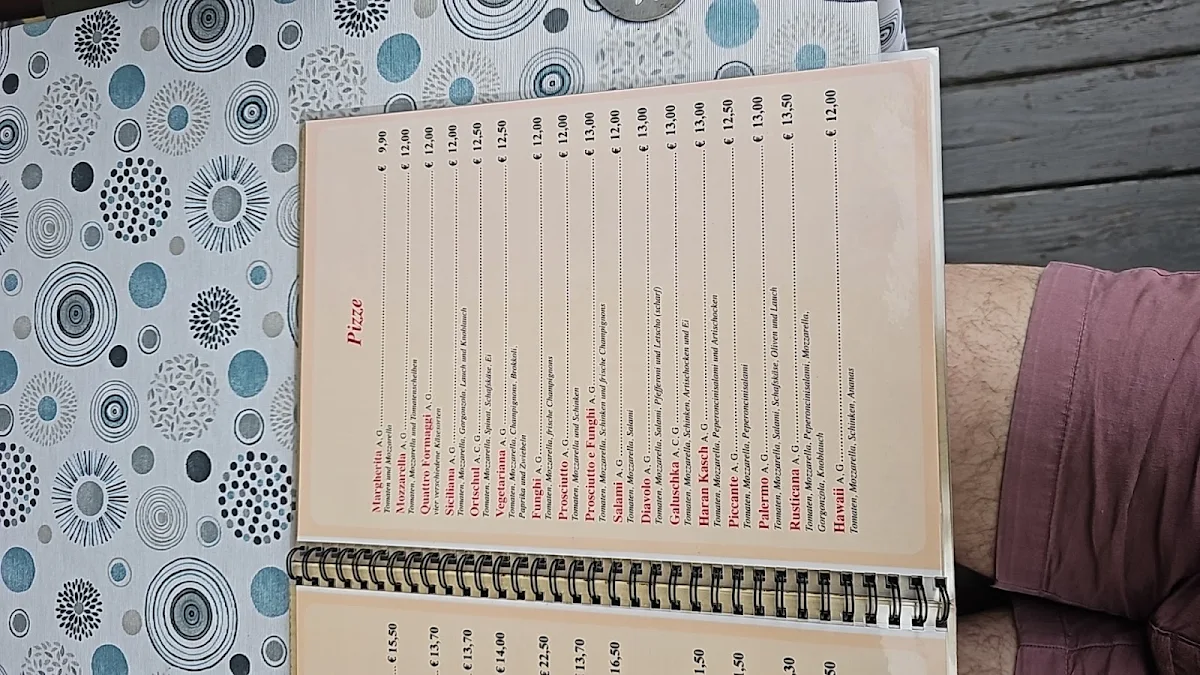 Pizze
Margherita A, G € 9,90
Tomaten und Mozzarella
Mozzarella A, G € 12,00
Tomaten, Mozzarella und Tomatenscheiben
Quattro Formaggi A, G € 12,00
vier verschiedene Käsesorten
Siciliana A, G € 12,00
Tomaten, Mozzarella, Gorgonzola, Lauch und Knoblauch
Ortschul A, C, G € 12,50
Tomaten, Mozzarella, Spinat, Schafskäse, Ei
Vegetariana A, G € 12,50
Tomaten, Mozzarella, Champignons, Brokkoli,
Paprika und Zwiebeln
Funghi A, G € 12,00
Tomaten, Mozzarella, frische Champignons
Prosciutto A, G € 12,00
Tomaten, Mozzarella und Schinken
Prosciutto e Funghi A, G € 13,00
Tomaten, Mozzarella, Schinken und frische Champignons
Salami A, G € 12,00
Tomaten, Mozzarella, Salami
Diavolo A, G € 13,00
Tomaten, Mozzarella, Salami, Pfefferoni und Letscho (scharf)
Galuschka A, C, G € 13,00
Tomaten, Mozzarella, Schinken, Artischocken und Ei
Haran Kasch A, G € 13,00
Tomaten, Mozzarella, Peperoncinisalami und Artischocken
Piccante A, G € 12,50
Tomaten, Mozzarella, Peperoncinisalami
Palermo A, G € 13,00
Tomaten, Mozzarella, Salami, Schafskäse, Oliven und Lauch
Rusticana A, G € 13,50
Tomaten, Mozzarella, Peperoncinisalami, Mozzarella,
Gorgonzola, Knoblauch
Hawaii A, G € 12,00
Tomaten, Mozzarella, Schinken, Ananas
€ 15,50
€ 13,70
€ 13,70
€ 14,00
€ 22,50
13,70
16,50
1,50
1,50
,30
50